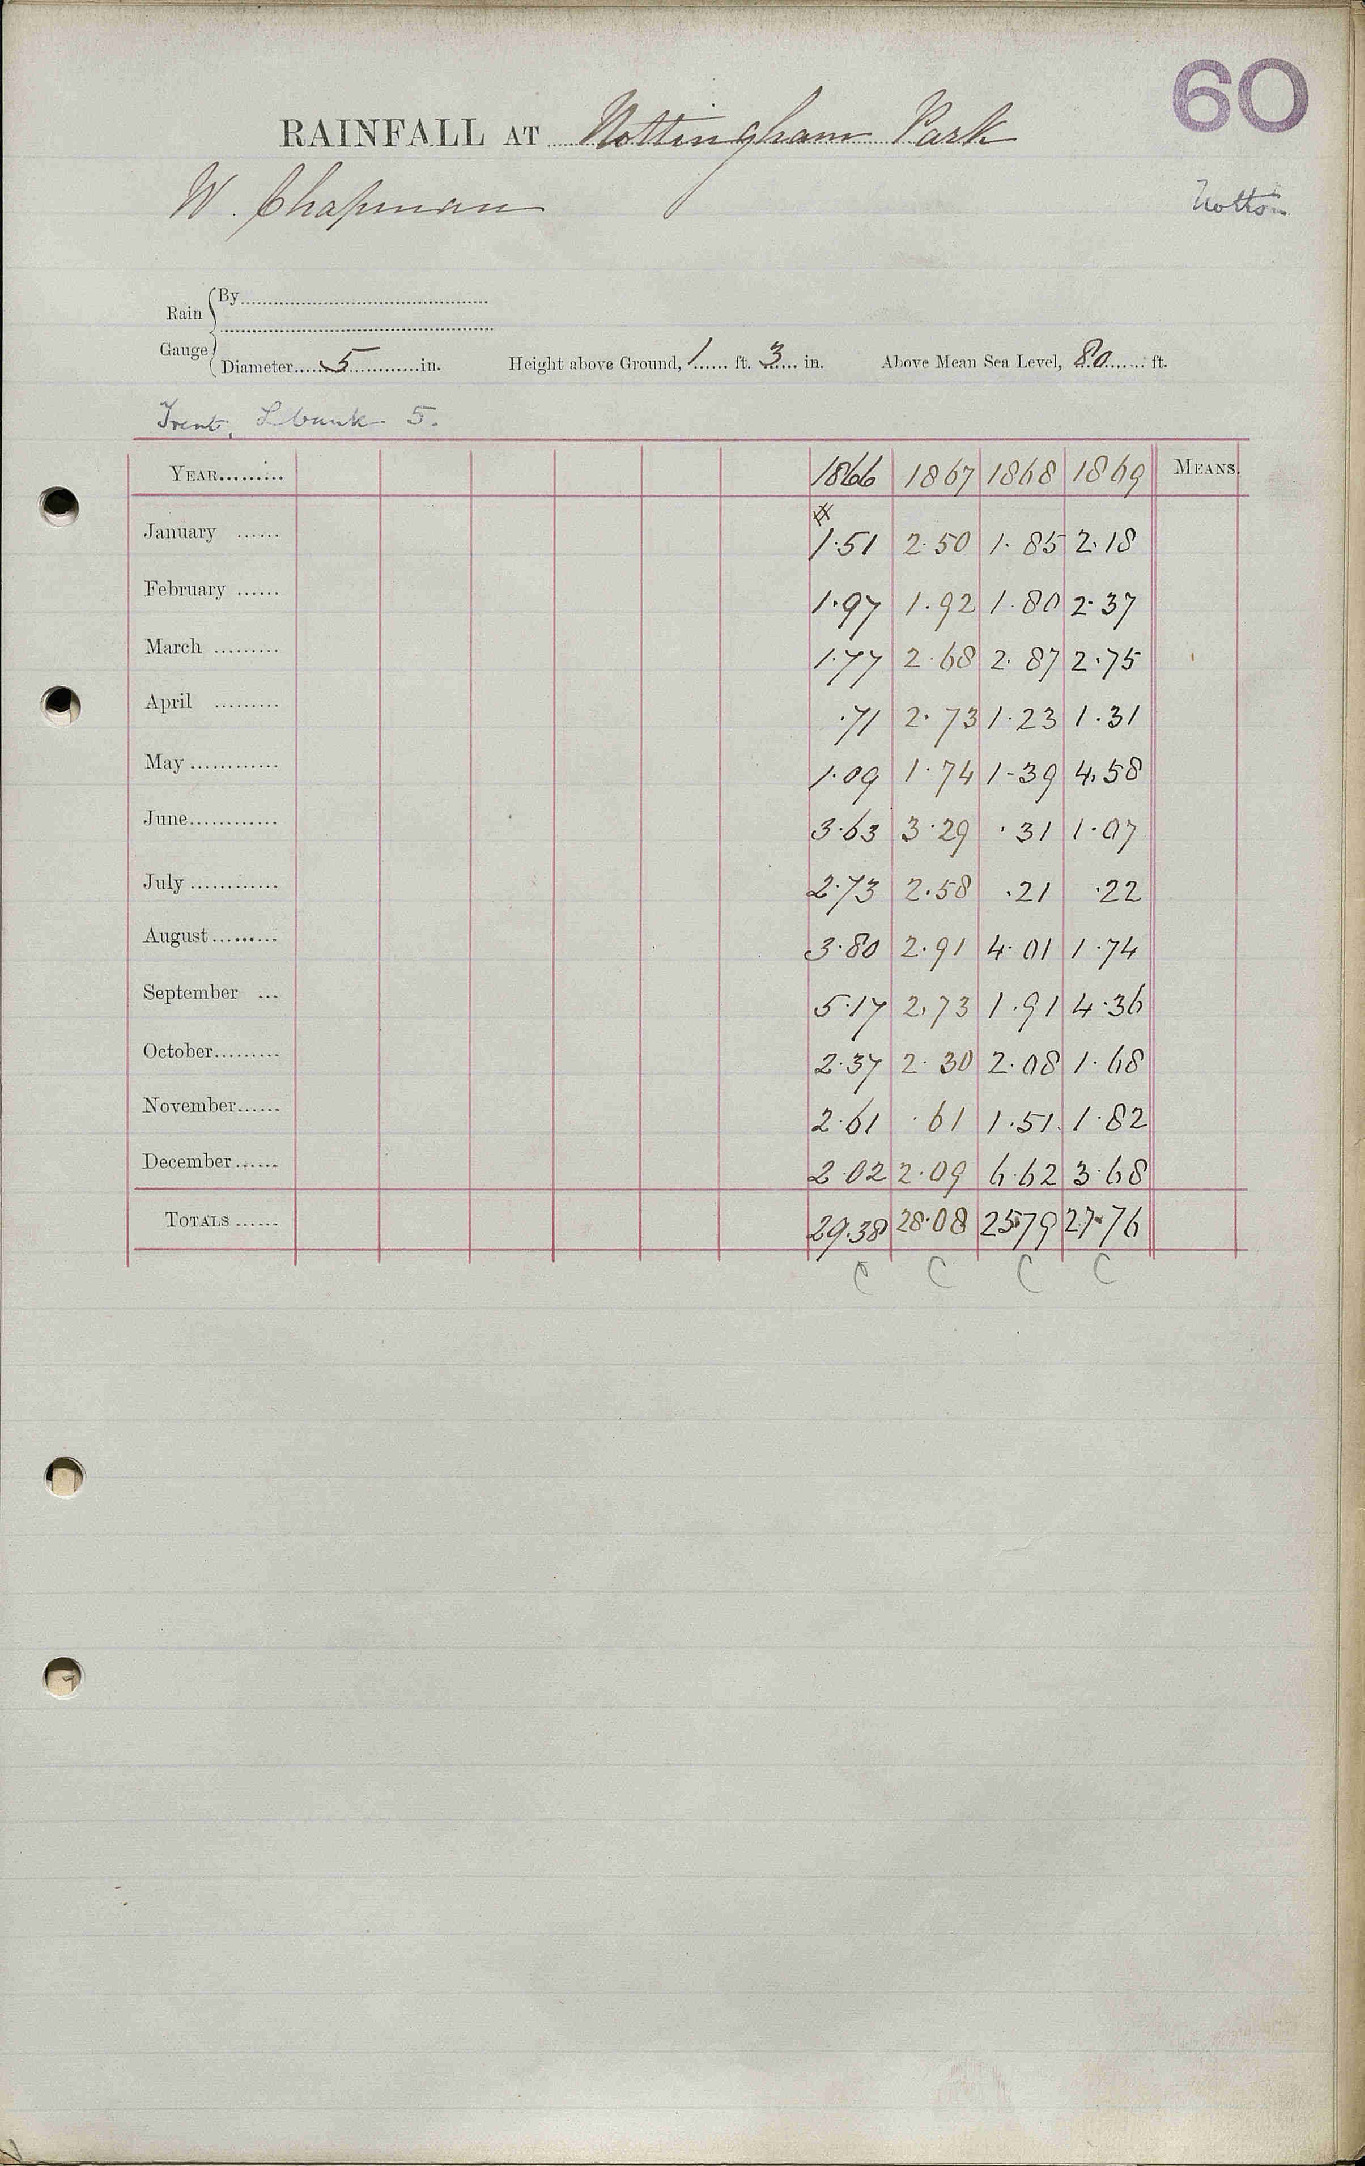 60
RAINFALL AT Nottingham Park
W. Chapman
Notts
Rain Gauge
By
Diameter 5 in. Height above Ground, 1 ft. 3 in. Above Mean Sea Level, 80 ft.
Trent, L bank 5.
YEAR 1866 1867 1868 1869 MEANS.
January 1.51 2.50 1.85 2.18
February 1.97 1.92 1.80 2.37
March 1.77 2.68 2.87 2.75
April .71 2.73 1.23 1.31
May 1.09 1.74 1.39 4.58
June 3.63 3.29 .31 1.07
July 2.73 2.58 .21 .22
August 3.80 2.91 4.01 1.74
September 5.17 2.73 1.91 4.36
October 2.37 2.30 2.08 1.68
November 2.61 .61 1.51 1.82
December 2.02 2.09 6.62 3.68
TOTALS 29.38 28.08 25.79 27.76
C C C C